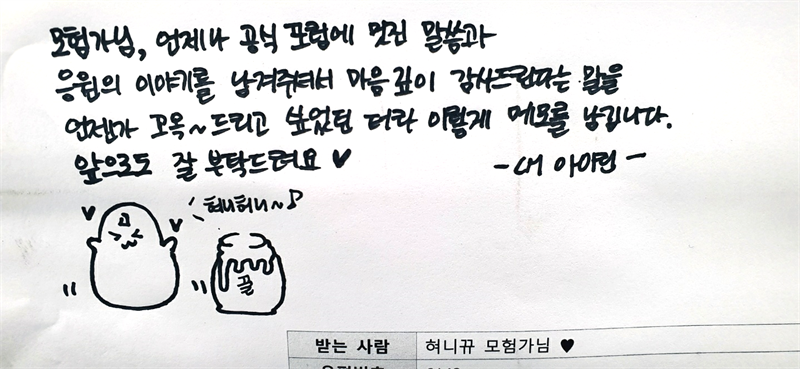 모험가님, 언제나 공식 포럼에 멋진 말씀과
응원의 이야기를 남겨주셔서 마음 깊이 감사드린다는 말을
언젠가 꼬옥~ 드리고 싶었던 터라 이렇게 메모를 남깁니다.
앞으로도 잘 부탁드려요 ♥
- GM 아이린 -
허니허니~♪
꿀
받는 사람 혀니뀨 모험가님 ♥